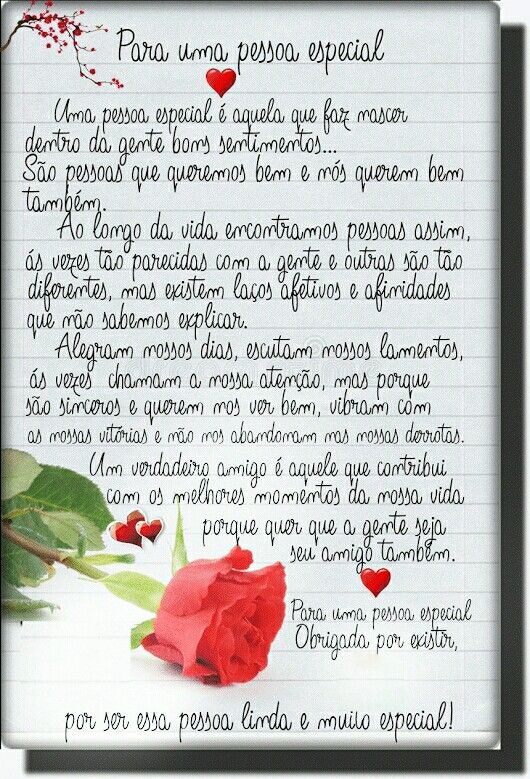 Para uma pessoa especial
Uma pessoa especial é aquela que faz nascer
dentro da gente bons sentimentos...
São pessoas que queremos bem e nós querem bem
também.
Ao longo da vida encontramos pessoas assim,
ás vezes tão parecidas com a gente e outras são tão
diferentes, mas existem laços afetivos e afinidades
que não sabemos explicar.
Alegram nossos dias, escutam nossos lamentos,
ás vezes chamam a nossa atenção, mas porque
são sinceros e querem nos ver bem, vibram com
as nossas vitórias e não nos abandonam nas nossas derrotas.
Um verdadeiro amigo é aquele que contribui
com os melhores momentos da nossa vida
porque quer que a gente seja
seu amigo também.
Para uma pessoa especial
Obrigada por existir,
por ser essa pessoa linda e muito especial!